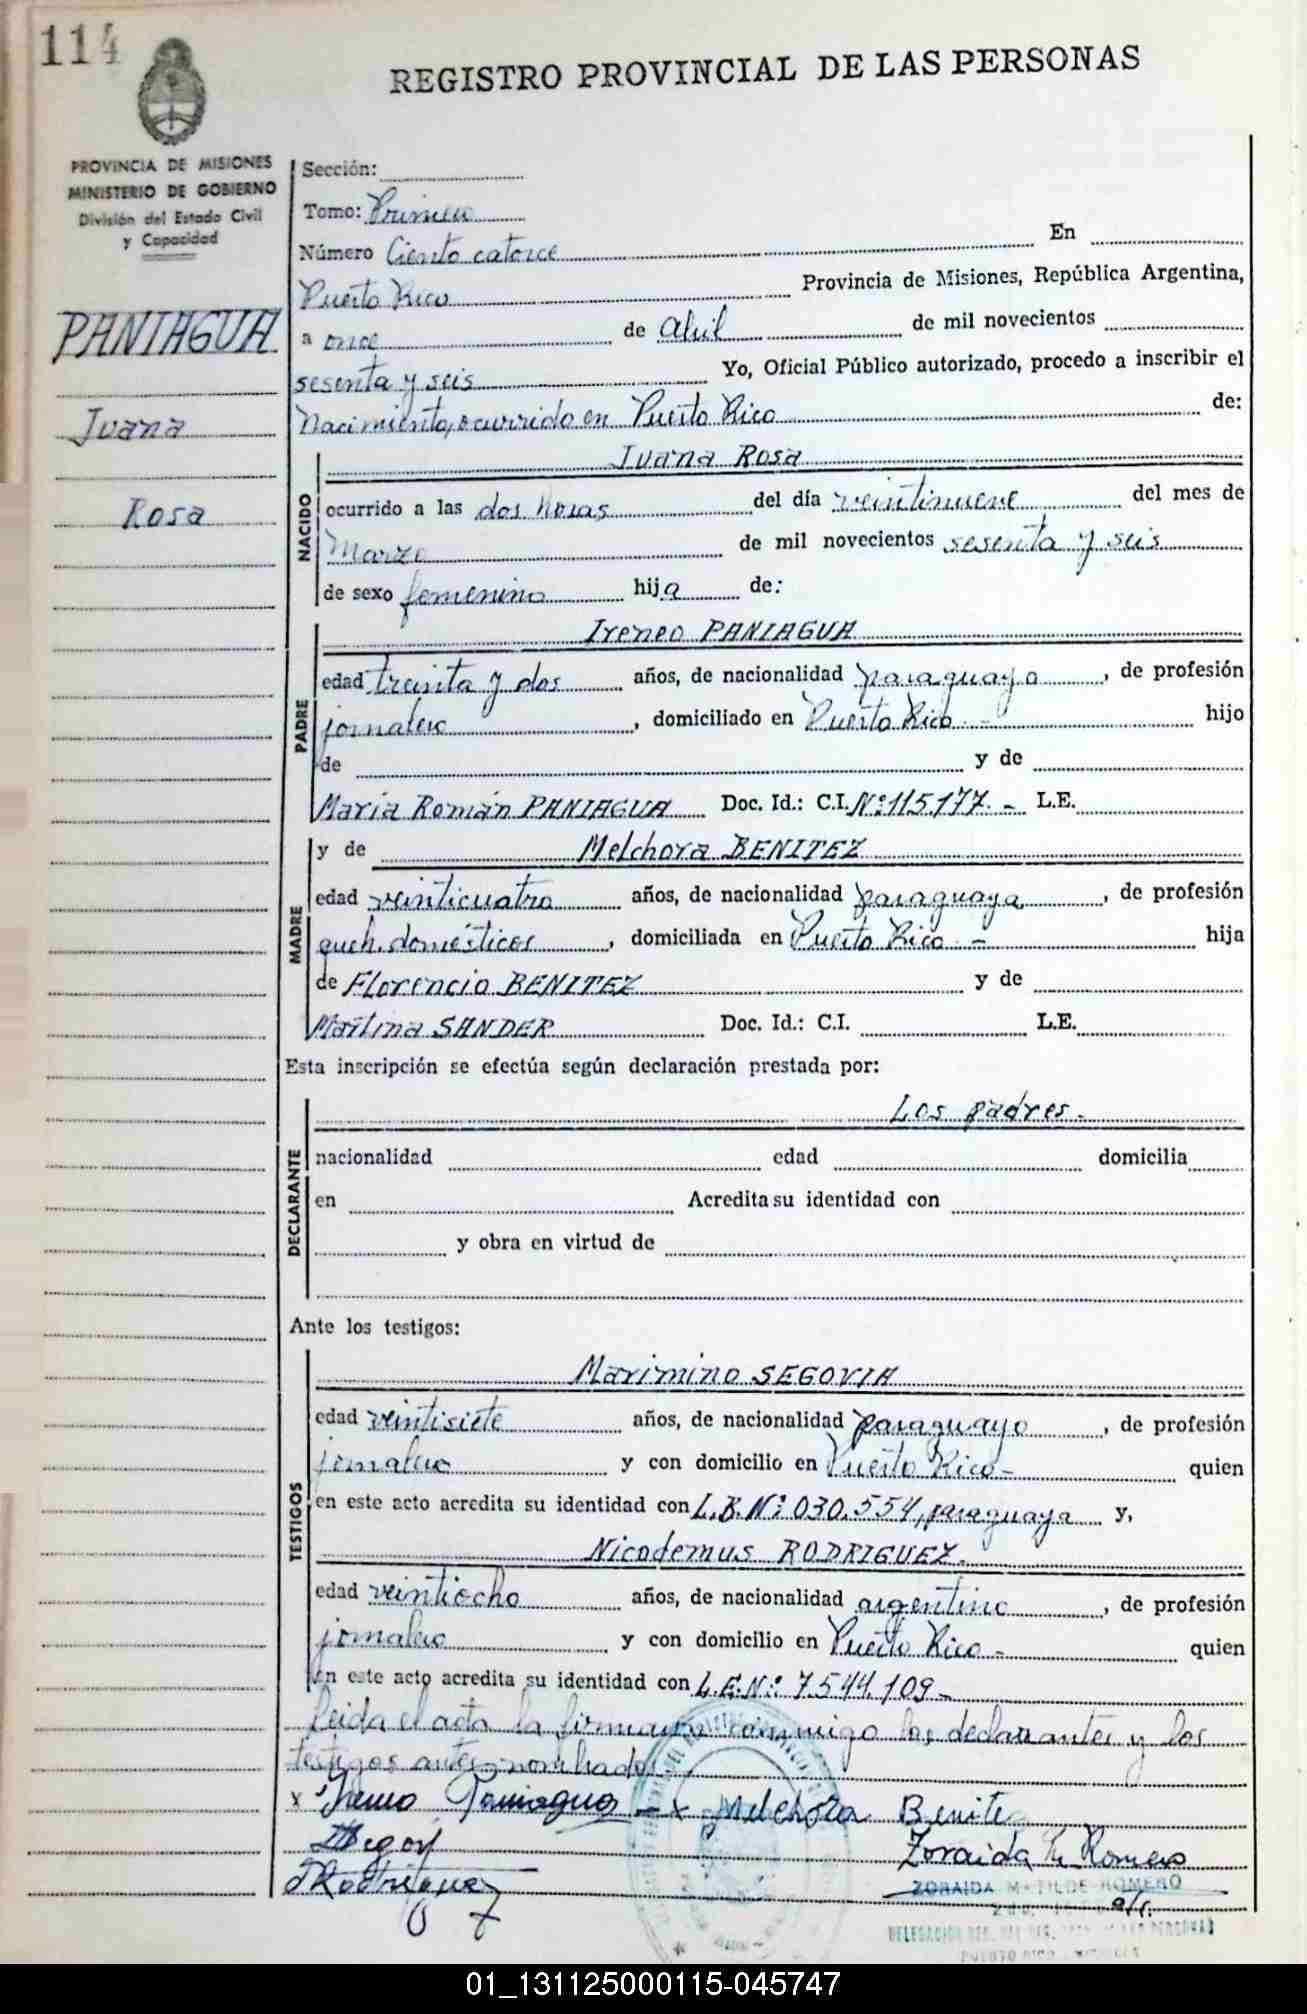 114
REGISTRO PROVINCIAL DE LAS PERSONAS
PROVINCIA DE MISIONES
MINISTERIO DE GOBIERNO
División del Estado Civil
y Capacidad
PANIAGUA
Juana
Rosa
Sección:
Tomo: Primero
Número Ciento catorce En
Puerto Rico Provincia de Misiones, República Argentina,
a once de abril de mil novecientos
sesenta y seis Yo, Oficial Público autorizado, procedo a inscribir el
Nacimiento, ocurrido en Puerto Rico de:
NACIDO
Juana Rosa
ocurrido a las dos horas del día veintinueve del mes de
Marzo de mil novecientos sesenta y seis
de sexo femenino hija de:
PADRE
Ireneo PANIAGUA
edad treinta y dos años, de nacionalidad paraguayo, de profesión
jornalero, domiciliado en Puerto Rico - hijo
de y de
María Román PANIAGUA Doc. Id.: C.I. Nº 115.177.- L.E.
MADRE
y de Melchora BENITEZ
edad veinticuatro años, de nacionalidad paraguaya, de profesión
queh. domésticos, domiciliada en Puerto Rico.- hija
de Florencio BENITEZ y de
SANDER Doc. Id.: C.I. L.E.
Esta inscripción se efectúa según declaración prestada por:
DECLARANTE
Los padres.-
nacionalidad edad domicilia
en Acredita su identidad con
y obra en virtud de
Ante los testigos:
TESTIGOS
Maximino SEGOVIA
edad veintisiete años, de nacionalidad paraguayo, de profesión
jornalero y con domicilio en Puerto Rico- quien
en este acto acredita su identidad con L.B. Nº 030.554, paraguaya y,
Nicodemus RODRIGUEZ.
edad veintiocho años, de nacionalidad argentino, de profesión
jornalero y con domicilio en Puerto Rico- quien
en este acto acredita su identidad con L.E. Nº 7.544.109-
Leida el acta la firman conmigo los declarantes y los
testigos antes nombrados
x Ireneo Paniagua - x Melchora Benitez
Segov
Rodriguez
Zoraida M. Romero
ZORAIDA MATILDE ROMERO
PUERTO RICO - MISIONES
01_131125000115-045747